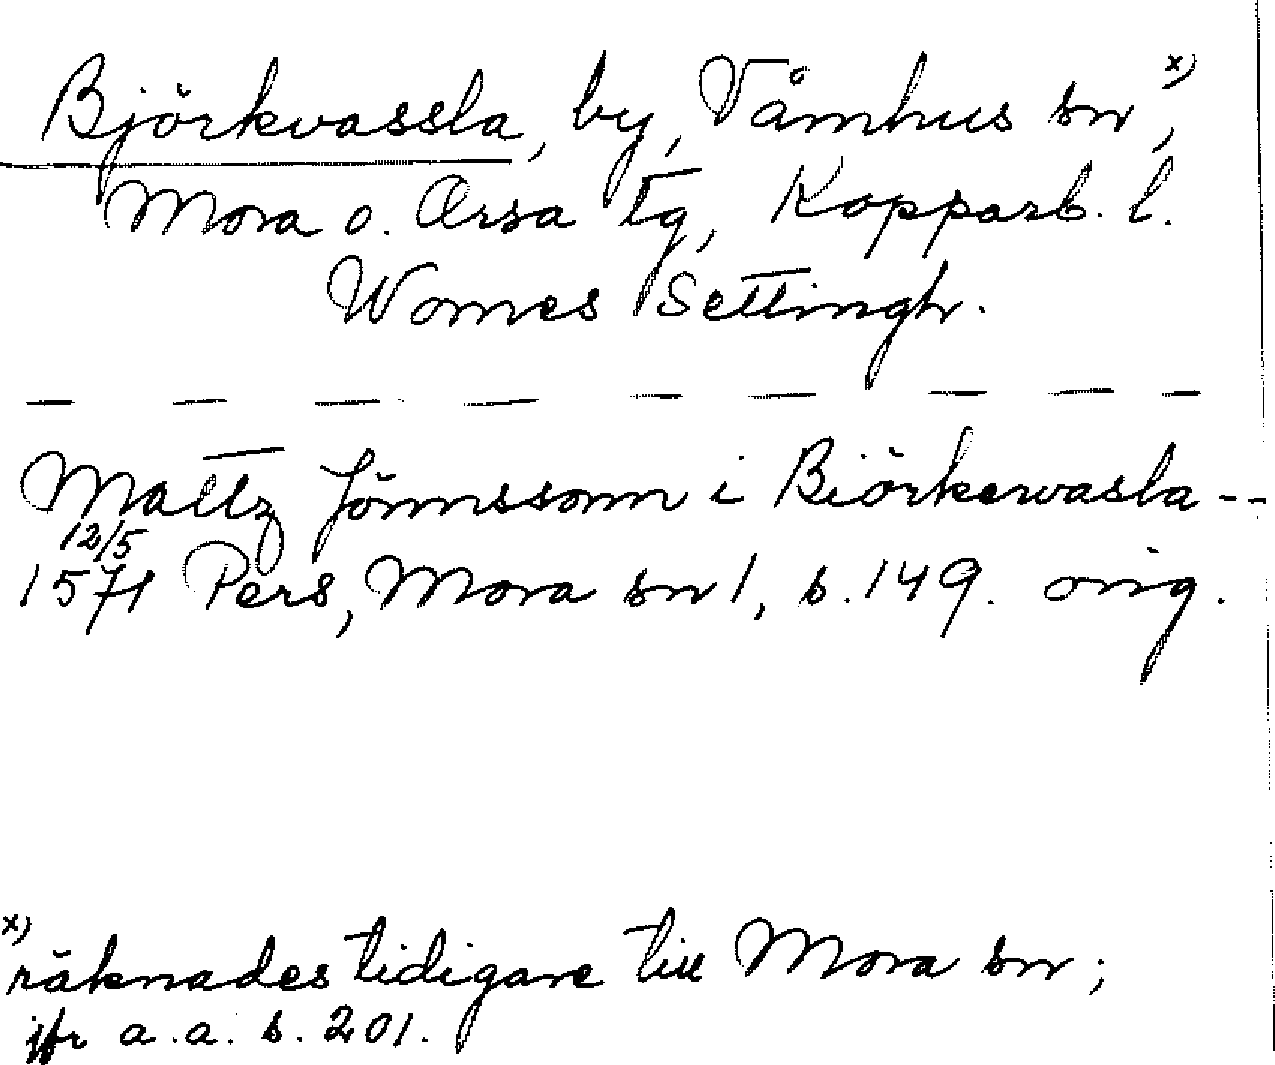 Björkvassla, by, Våmhus sn x),
Mora o. Orsa tg, Kopparb. l.
Womes Settingh.
— — — — — — — — —
Mattz Jönnssonn i Biörkewasla --
12/5
1571 Pers, Mora sn 1, s. 149. orig.
x)
räknades tidigare till Mora sn;
jfr a.a. s. 201.